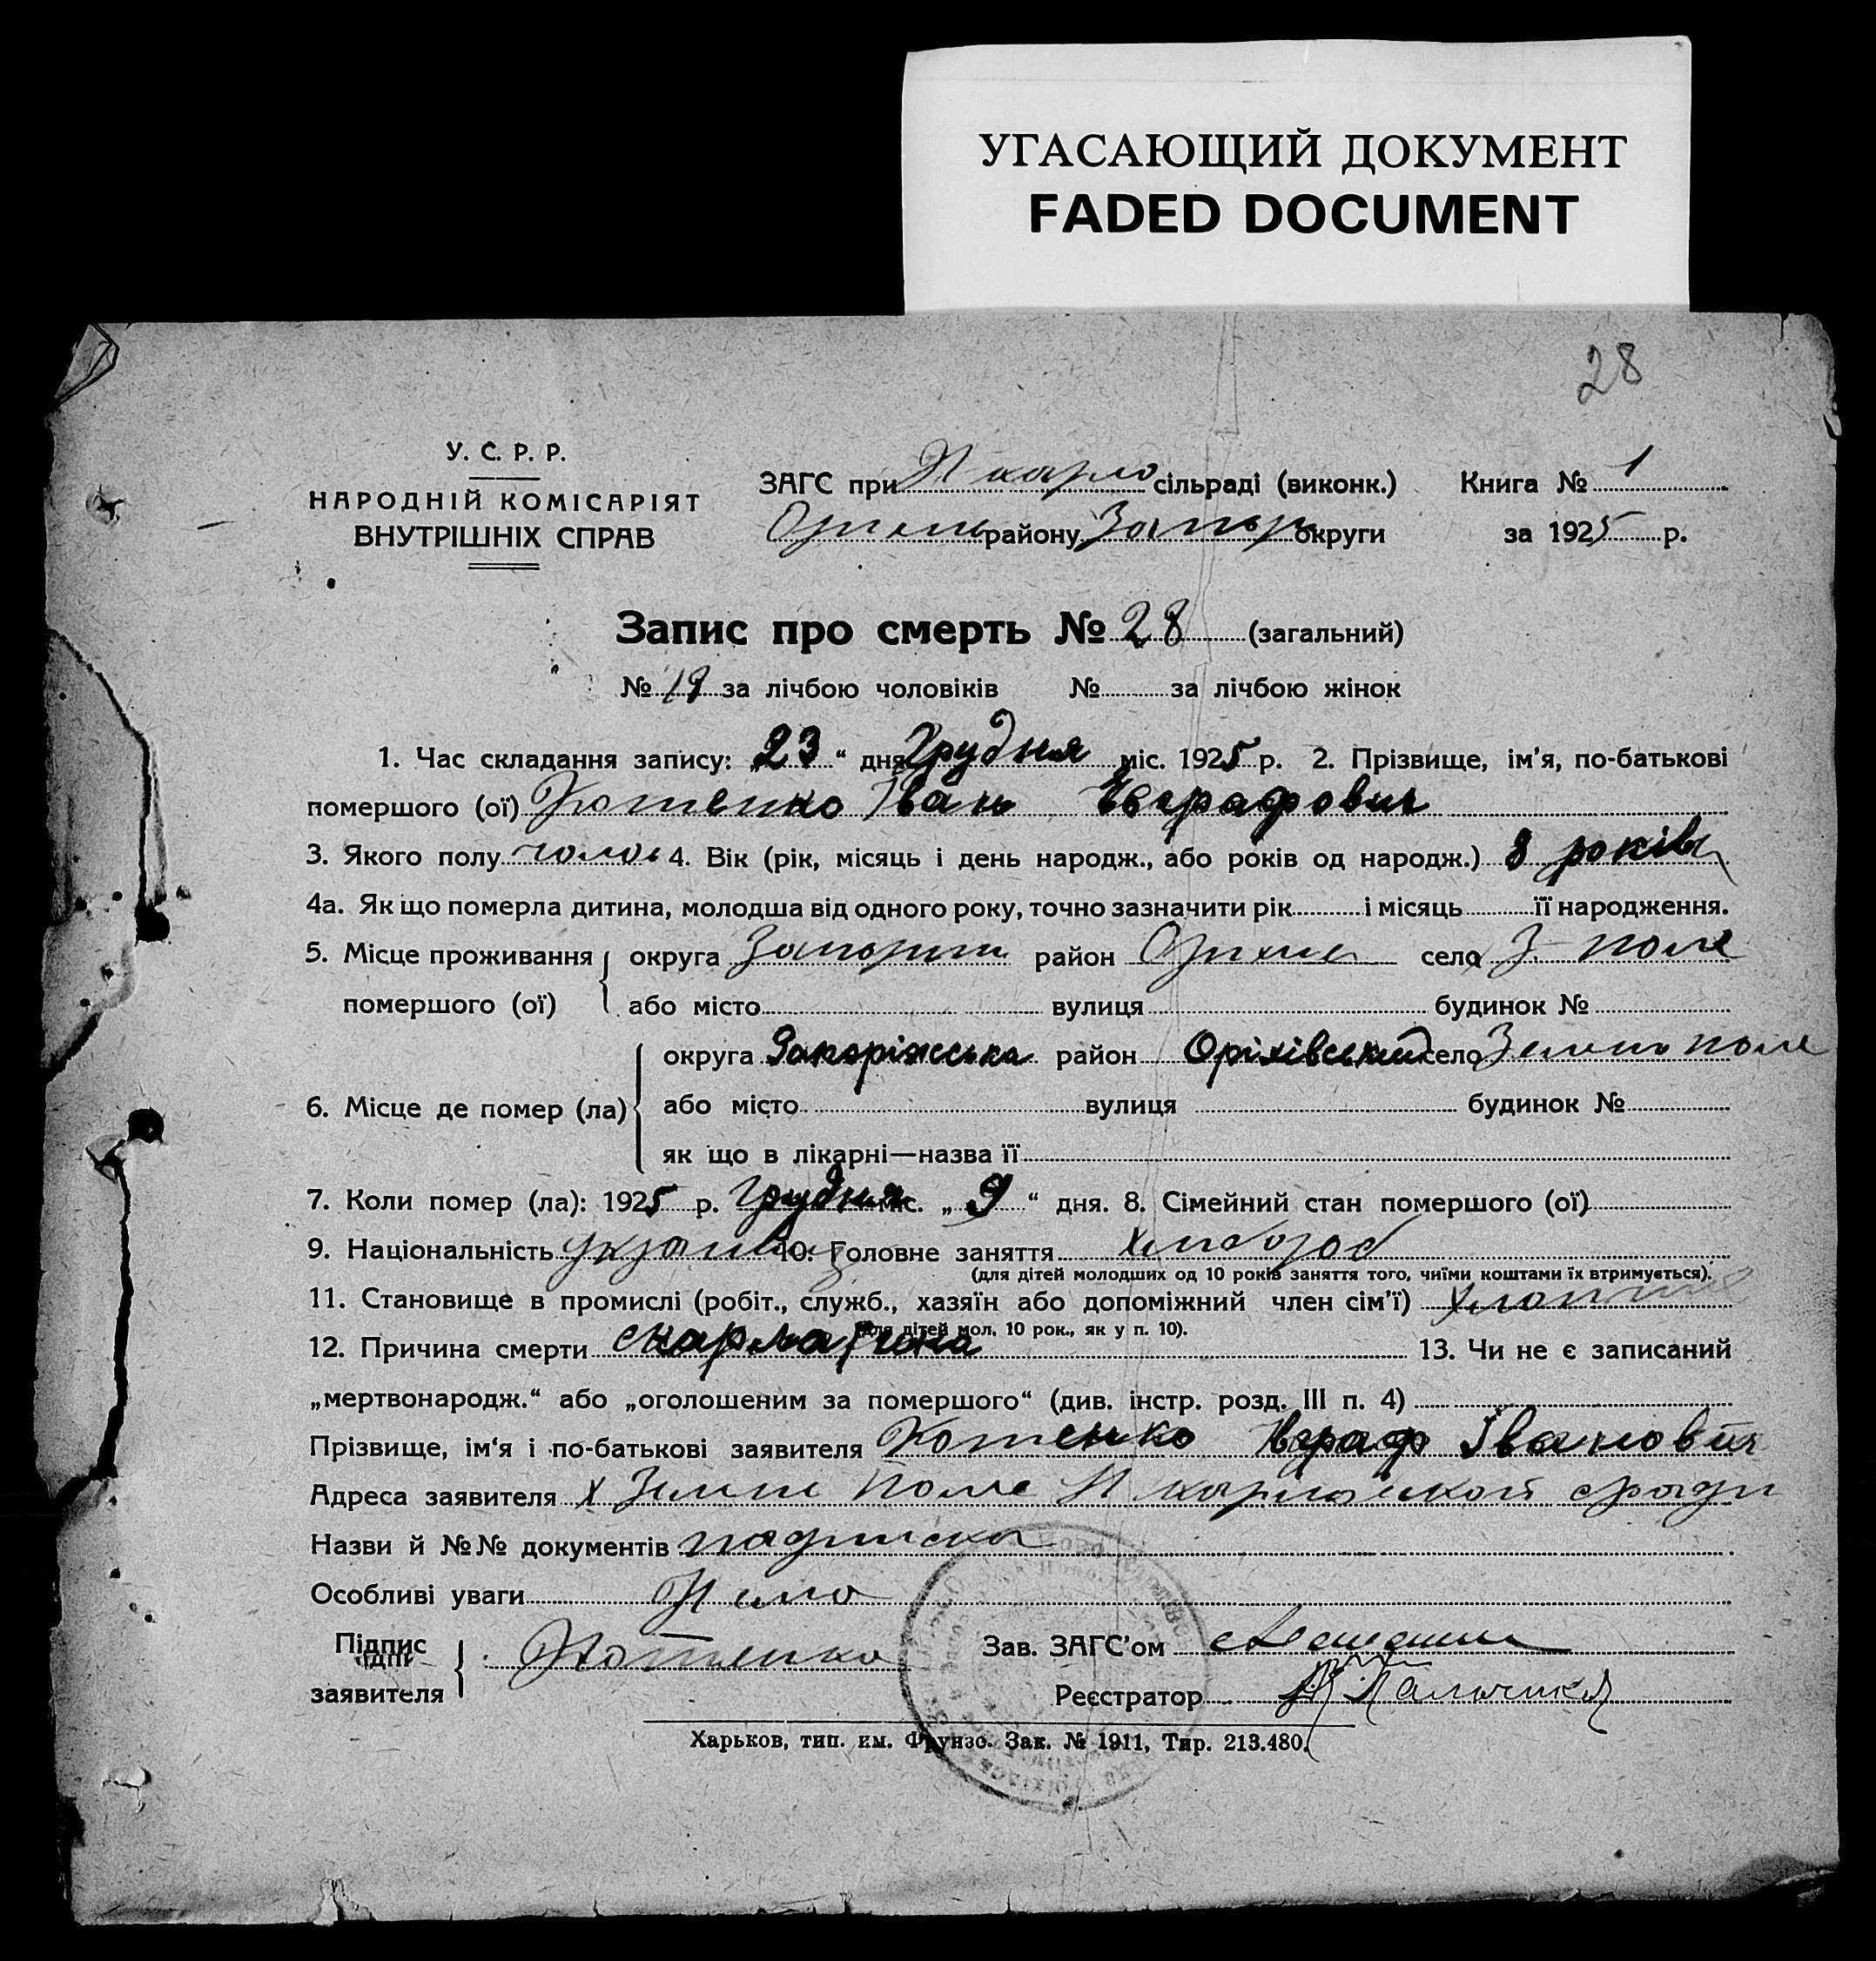 УГАСАЮЩИЙ ДОКУМЕНТ
FADED DOCUMENT
28
У. С. Р. Р.
НАРОДНІЙ КОМІСАРІЯТ
ВНУТРІШНІХ СПРАВ
ЗАГС при Н карло сільраді (виконк.) Книга № 1
району Запор округи за 1925 р.
Запис про смерть № 28 (загальний)
№ 19 за лічбою чоловіків № за лічбою жінок
1. Час складання запису: „23“ дня Грудня міс. 1925 р. 2. Прізвище, ім'я, по-батькові
помершого (ої) Котенко Іван Евграфович
3. Якого полу чолов 4. Вік (рік, місяць і день народж., або років од народж.) 8 років
4а. Як що померла дитина, молодша від одного року, точно зазначити рік і місяць її народження.
5. Місце проживання округа район село З поле
помершого (ої) або місто вулиця будинок №
округа Запоріжська район Оріхівський село Зелене поле
6. Місце де помер (ла) або місто вулиця будинок №
як що в лікарні—назва її
7. Коли помер (ла): 1925 р. Грудня міс. „9“ дня. 8. Сімейний стан помершого (ої)
9. Національність українец 10. Головне заняття хлебороб
(для дітей молодших од 10 років заняття того, чиїми коштами їх втримується).
11. Становище в промислі (робіт., служб., хазяїн або допоміжний член сім'ї)
(для дітей мол. 10 рок., як у п. 10).
12. Причина смерти скарлатина 13. Чи не є записаний
„мертвонародж.“ або „оголошеним за помершого“ (див. інстр. розд. III п. 4)
Прізвище, ім'я і по-батькові заявителя Котенко Евграф Іванович
Адреса заявителя х Зелене Поле Н карловской сради
Назви й №№ документів подписка
Особливі уваги Нема
Підпис
заявителя Котенко
Зав. ЗАГС'ом
Реєстратор
Харьков, тип. им. Фрунзе. Зак. № 1911, Тир. 213.480.